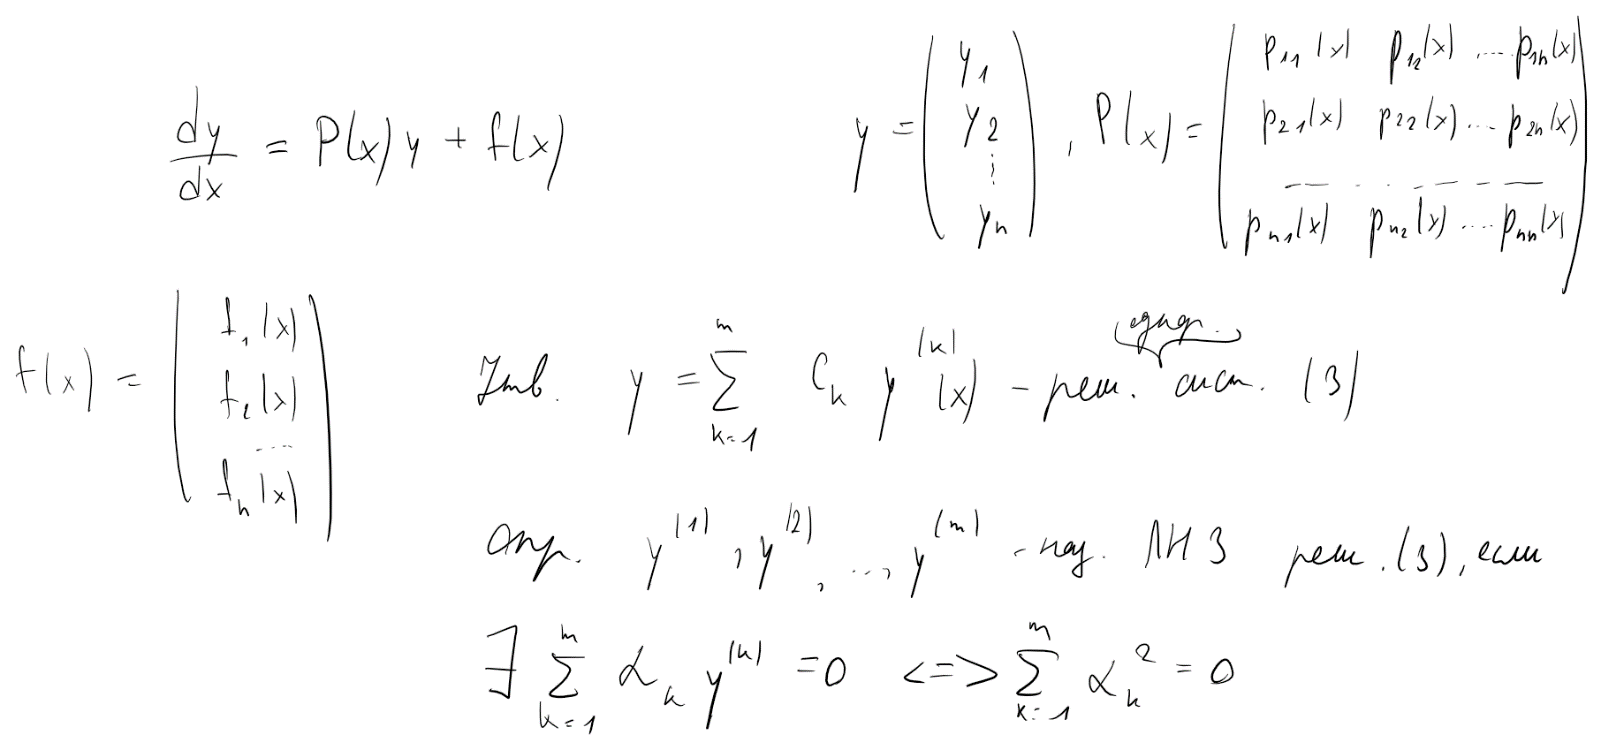 dy/dx = P(x)y + f(x)
y = (y₁ y₂ ⋮ yₙ), P(x) = (p₁₁(x) p₁₂(x) .... p₁ₙ(x)
p₂₁(x) p₂₂(x) ... p₂ₙ(x)
pₙ₁(x) pₙ₂(x) .... pₙₙ(x))
f(x) = (f₁(x) f₂(x) .... fₙ(x))
однор.
Утв. y = ∑_{k=1}^{m} C_k y^{(k)}(x) - реш. сист. (3)
Опр. y^{(1)}, y^{(2)}, ..., y^{(m)} - наз. ЛНЗ реш. (3), если
∃ ∑_{k=1}^{m} α_k y^{(k)} = 0 <=> ∑_{k=1}^{m} α_k² = 0